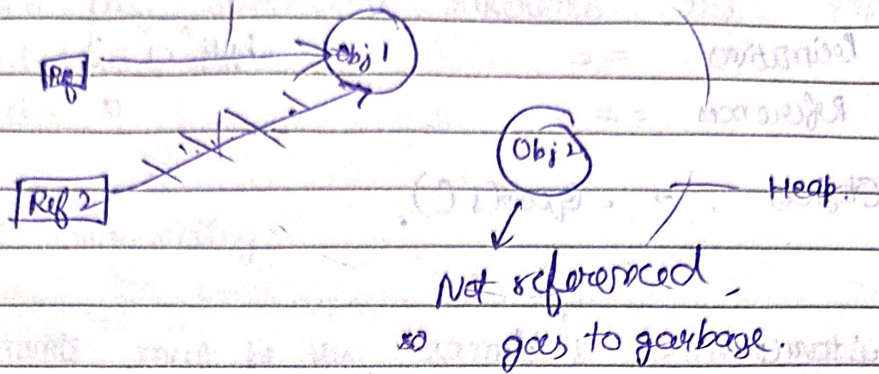 Obj 1
Ref
Obj 2
Ref 2
Heap.
Not referenced,
so goes to garbage.